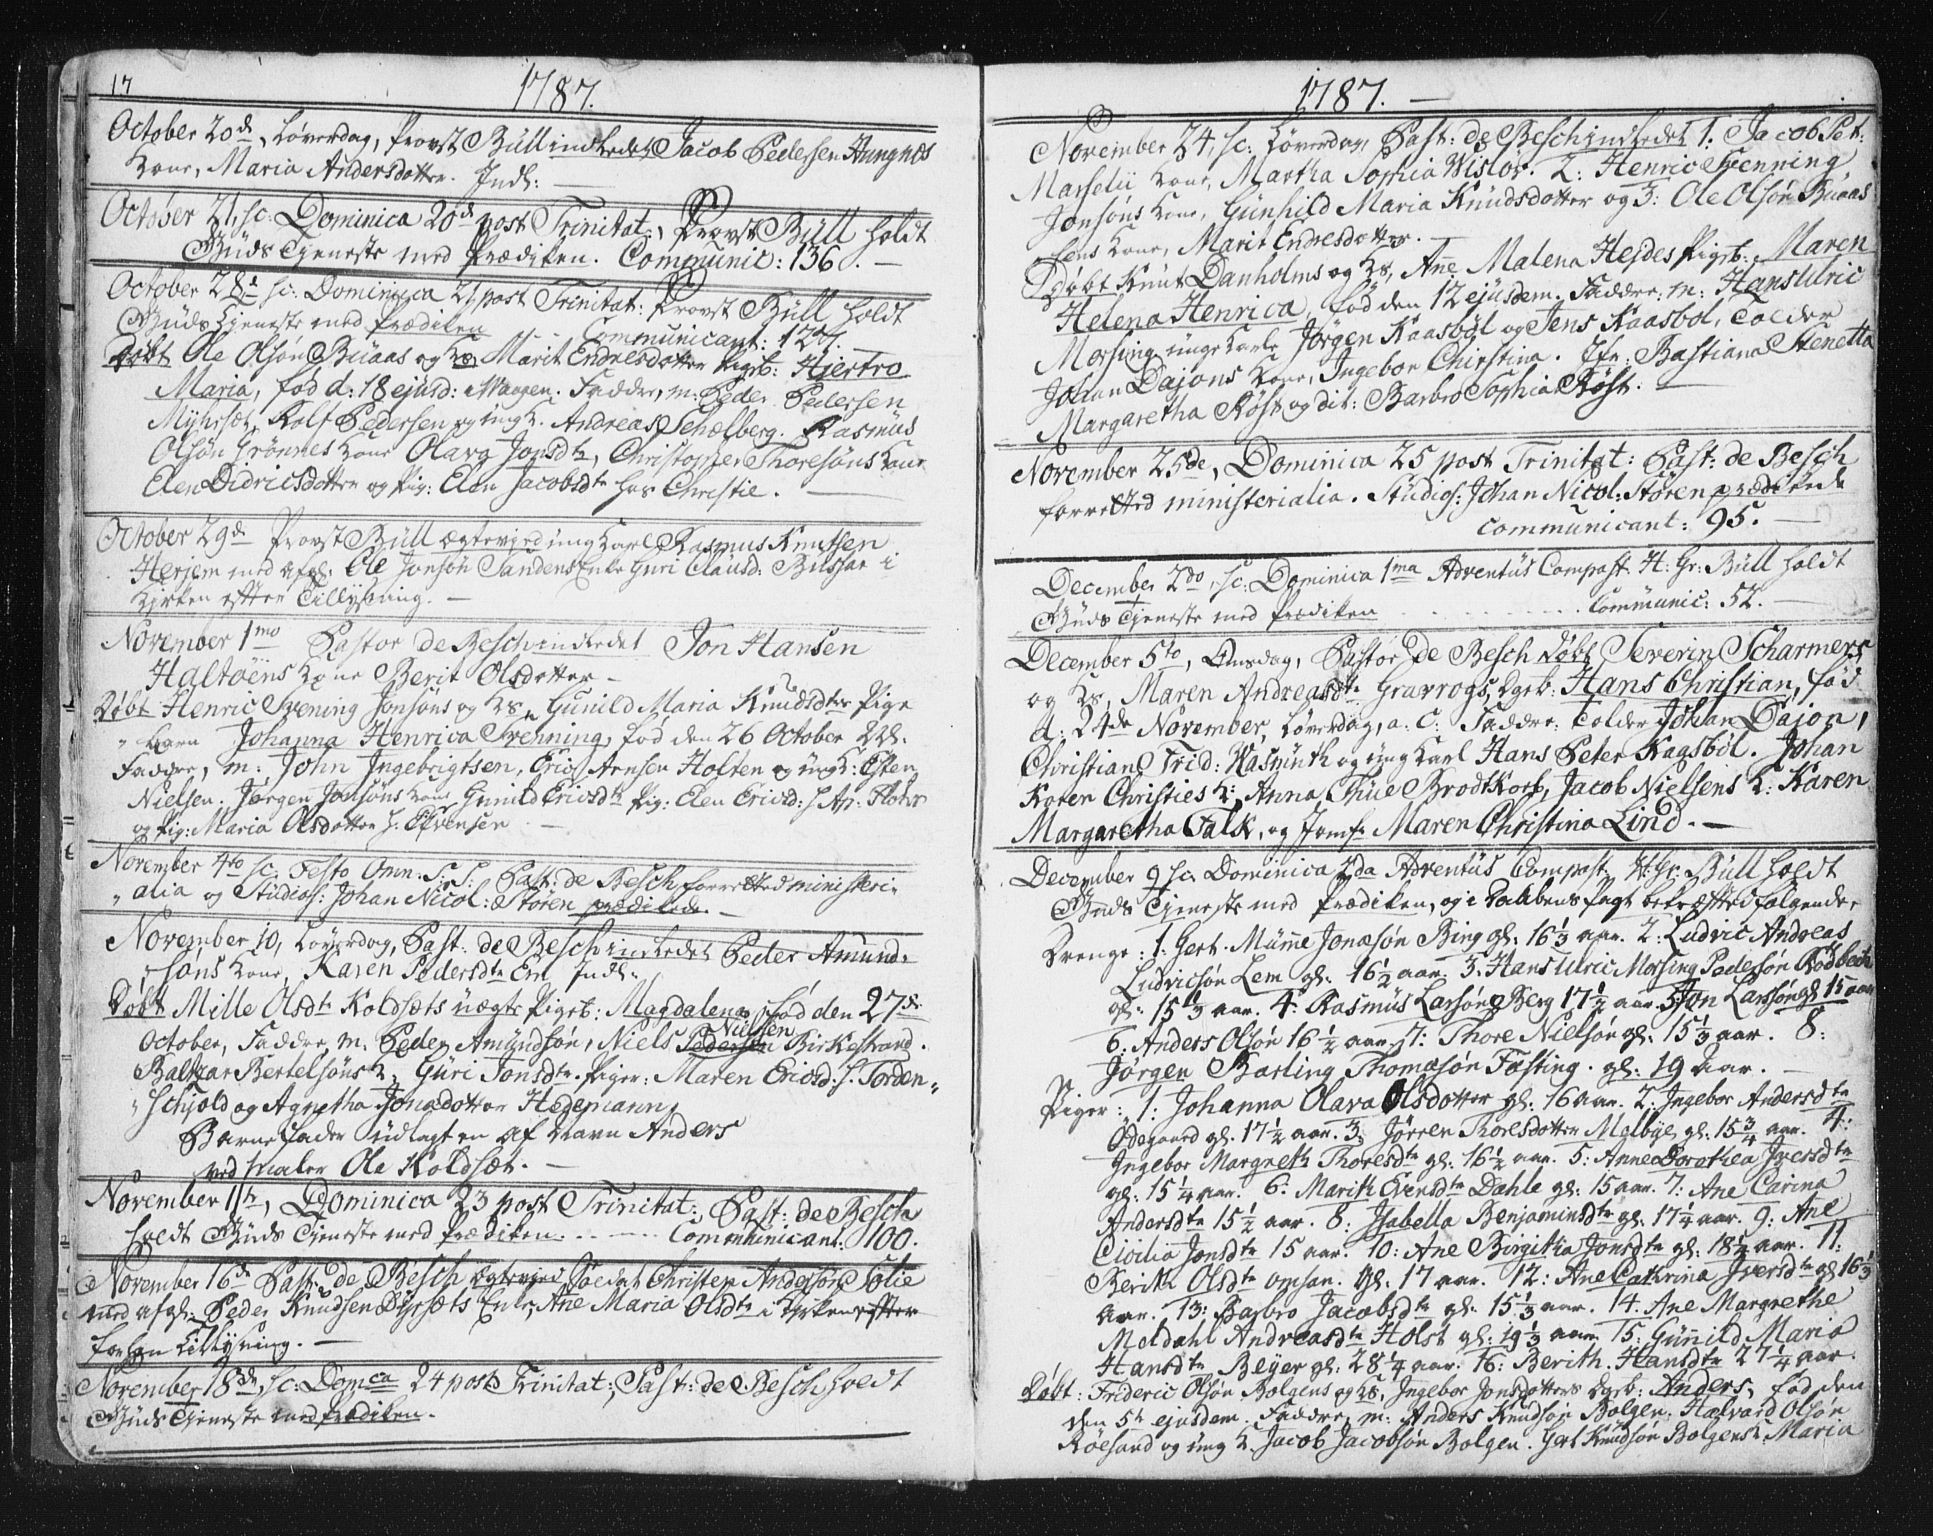 17
1787.
October 20de, Løverdag, Provst Büll indledet Jacob Pedersen Hungnes
Kone, Maria Andersdotter. Indl:
October 21, sc: Dominica 20de post Trinitat:, Provst Büll holdt
Guds Tjeneste med Prædiken. Communic: 136.
October 28de sc: Dominica 21 post Trinitat: Provst Büll holdt
Guds Tjeneste med Prædiken Communicant:
Døbt Ole Olsøn Büaas og Ks Marit Endresdotter Pigeb: Hjertro
Maria, fød d: 18 ejusd: Faddre, m: Peder Pedersen
Myhrset, Rolf Pedersen og ung K. Andreas Schelberg. Rasmus
Olsøn Grønnes Kone Olava Jonsdtr, Christopher Thoresøns Kone
Elen Didricsdotter og Pig: Elen Jacobsdtr hos Christie.
October 29de Provst Büll ægteviede ung Karl Rasmus Knutsen
Herjem med afgl: Ole Jonsøn Sandens Enke Guri Clausd: Bussar i
Kirken efter Tillysning.
November 1mo Pastor de Besch indledet Jon Hansen
Haltøens Kone Berit Olsdotter
Døbt Henric Svening Jonsøns og Ks, Gunild Maria Knudsdtrs Pige
Barn Johanna Henrica Svenning, fød den 26 October
Faddre, m: John Ingebrigtsen, Eric Arnsen Holten og ung K: Esten
Nielsen. Jørgen Jonsøns Kone Gunild Ericsdtr Pig: Elen Ericsd:
og Pig: Maria Olsdotter h. Evensen
November 4to sc: Festo Omn: S: S: Past: de Besch forretted ministeri-
alia og Studios: Johan Nicol: Støren prædikede.
November 10, Løverdag, Past: de Besch indledet Peder Amund-
søns Kone, Karen Pedersdtr Indl:
Døbt Mille Olsdtr Koldsæts uægte Pigeb: Magdalena, fød den 27de
October, Faddre, m. Peder Amundsøn, Niels Pedersen Nielsen Birkestrand.
Baltzar Bertelsøns K: Guri Jonsdtr. Piger: Maren Ericsd: h. Torden-
schjold og Agnetha Jonsdotter Hegemann.
Barnefader udlagt en af Navn Anders
ved Maler Ole Koldsæt.
November 11te, Dominica 23 post Trinitat:, Past: de Besch
holdt Guds Tjeneste med Prædiken. Communicant: 100.
November 16de Past: de Besch ægteviede Soldat Christen Andersøn Solie
med afgl: Peder Knudsen Dyrsæts Enke, Ane Maria Olsdtr i Kirken efter
forlyn Tillysning.
November 18de, sc: Domca 24 post Trinitat:, Past: de Besch holdt
Guds Tjeneste med Prædiken.
1787.
November 24, sc: Løverdag, Past: de Besch indledet 1. Jacob Pet:
Marselii Kone, Martha Sophia Wisløv. 2: Henric Svenning
Jonsøns Kone, Günhild Maria Knüdsdotter og 3: Ole Olsøn Büaas
sens Kone, Marit Endresdotter.
Døbt Knut Danholms og Ks, Ane Malena Hejdes Pigeb: Maren
Helena Henrica, fød den 12 ejusdem. Faddre: m: Hans Ulric
Morsing, unge Karle Jørgen Kaasbøl og Jens Kaasbøl, Tolder
Johan Dajons Kone, Ingebor Christina. Jfr: Bastiana Stenetta
Margaretha Røst og dito: Barbro Sophia Røst.
November 25de, Dominica 25 post Trinitat: Past: de Besch
forretted ministerialia. Studios: Johan Nicol: Støren prædikede
Communicant: 95.
December 2do, sc: Dominica 1ma Adventus Compast: H: Gr: Büll holdt
Guds Tjeneste med Prædiken Communic: 52.
December 5to, Onsdag, Pastor de Besch døbt Severin Scharmers
og Ks, Maren Andreasdtr Gravrogs, Dgeb: Hans Christian, fød
d: 24de November, Løverdag, a: c: Faddre: Tolder Johan Dajon,
Christian Frid: Wasmuth og ung Karl Hans Peter Kaasbøl. Johan
Koren Christies K:, Anna Thue Brodtkorb, Jacob Nielsens K: Karen
Margaretha Falk, og Jomfr Maren Christina Lind.
December 9 sc: Dominica 2da Adventus Compast: H: Gr: Büll holdt
Guds Tjeneste med Prædiken, og i Daabens Pagt bekræftted følgende,
Drenge: 1: Gert Mumme Jonasøn Bing gl: 16 1/3 aar. 2: Ludvic Andreas
Ludvicsøn Lem gl: 16 1/2 aar. 3: Hans Ulric Morsing Pedersøn Rodbech
gl: 15 1/3 aar. 4: Rasmus Larsøn Berg 17 1/2 aar. 5: Jon Larsøn gl 15 aar
6: Anders Olsøn 16 1/2 aar. 7: Thore Nielsøn gl: 15 1/3 aar. 8:
Jørgen Barling Thomasøn Fasting. gl: 19 Aar.
Piger: 1: Johanna Olava Olsdotter gl: 16 aar. 2: Ingebor Andersdtr
Ødegaard gl. 17 1/2 aar. 3: Jørren Thoresdotter Melbye gl: 15 3/4 aar. 4:
Ingebor Margreth Thoresdtr gl: 16 1/2 aar. 5: Anne Dorothea Iversdtr
gl: 15 1/4 aar. 6: Marith Evensdtr Dahle gl: 15 aar. 7: Ane Carina
Andersdtr 15 1/2 aar. 8: Isabella Benjaminsdtr gl: 17 1/4 aar. 9: Ane
Cicilia Jonsdtr 15 aar. 10: Ane Birgitha Jonsdtr gl: 18 1/2 aar. 11:
Berith Olsdtr Omsan. Gl: 17 aar. 12: Ane Cathrina Iversdtr gl 16 1/3
Aar. 13: Barbro Jacobsdtr gl: 15 1/3 aar. 14: Ane Margrethe
Meldahl Andreasdtr Holst gl: 19 1/3 aar. 15: Gunild Maria
Hansdtr Beyer gl: 28 1/4 aar. 16: Berith Hansdtr 27 1/4 aar.
Døbt: Frideric Olsøn Bolgens og Ks, Ingebor Jonsdotters Dgeb: Anders, fød den
den 5te ejusdem. Faddre, m: Anders Knudsøn Bolgen. Halvard Olsøn
Røesand og ung K. Jacob Jacobsøn Bolgen. Gert Knudsøn Bolgens K: Maria